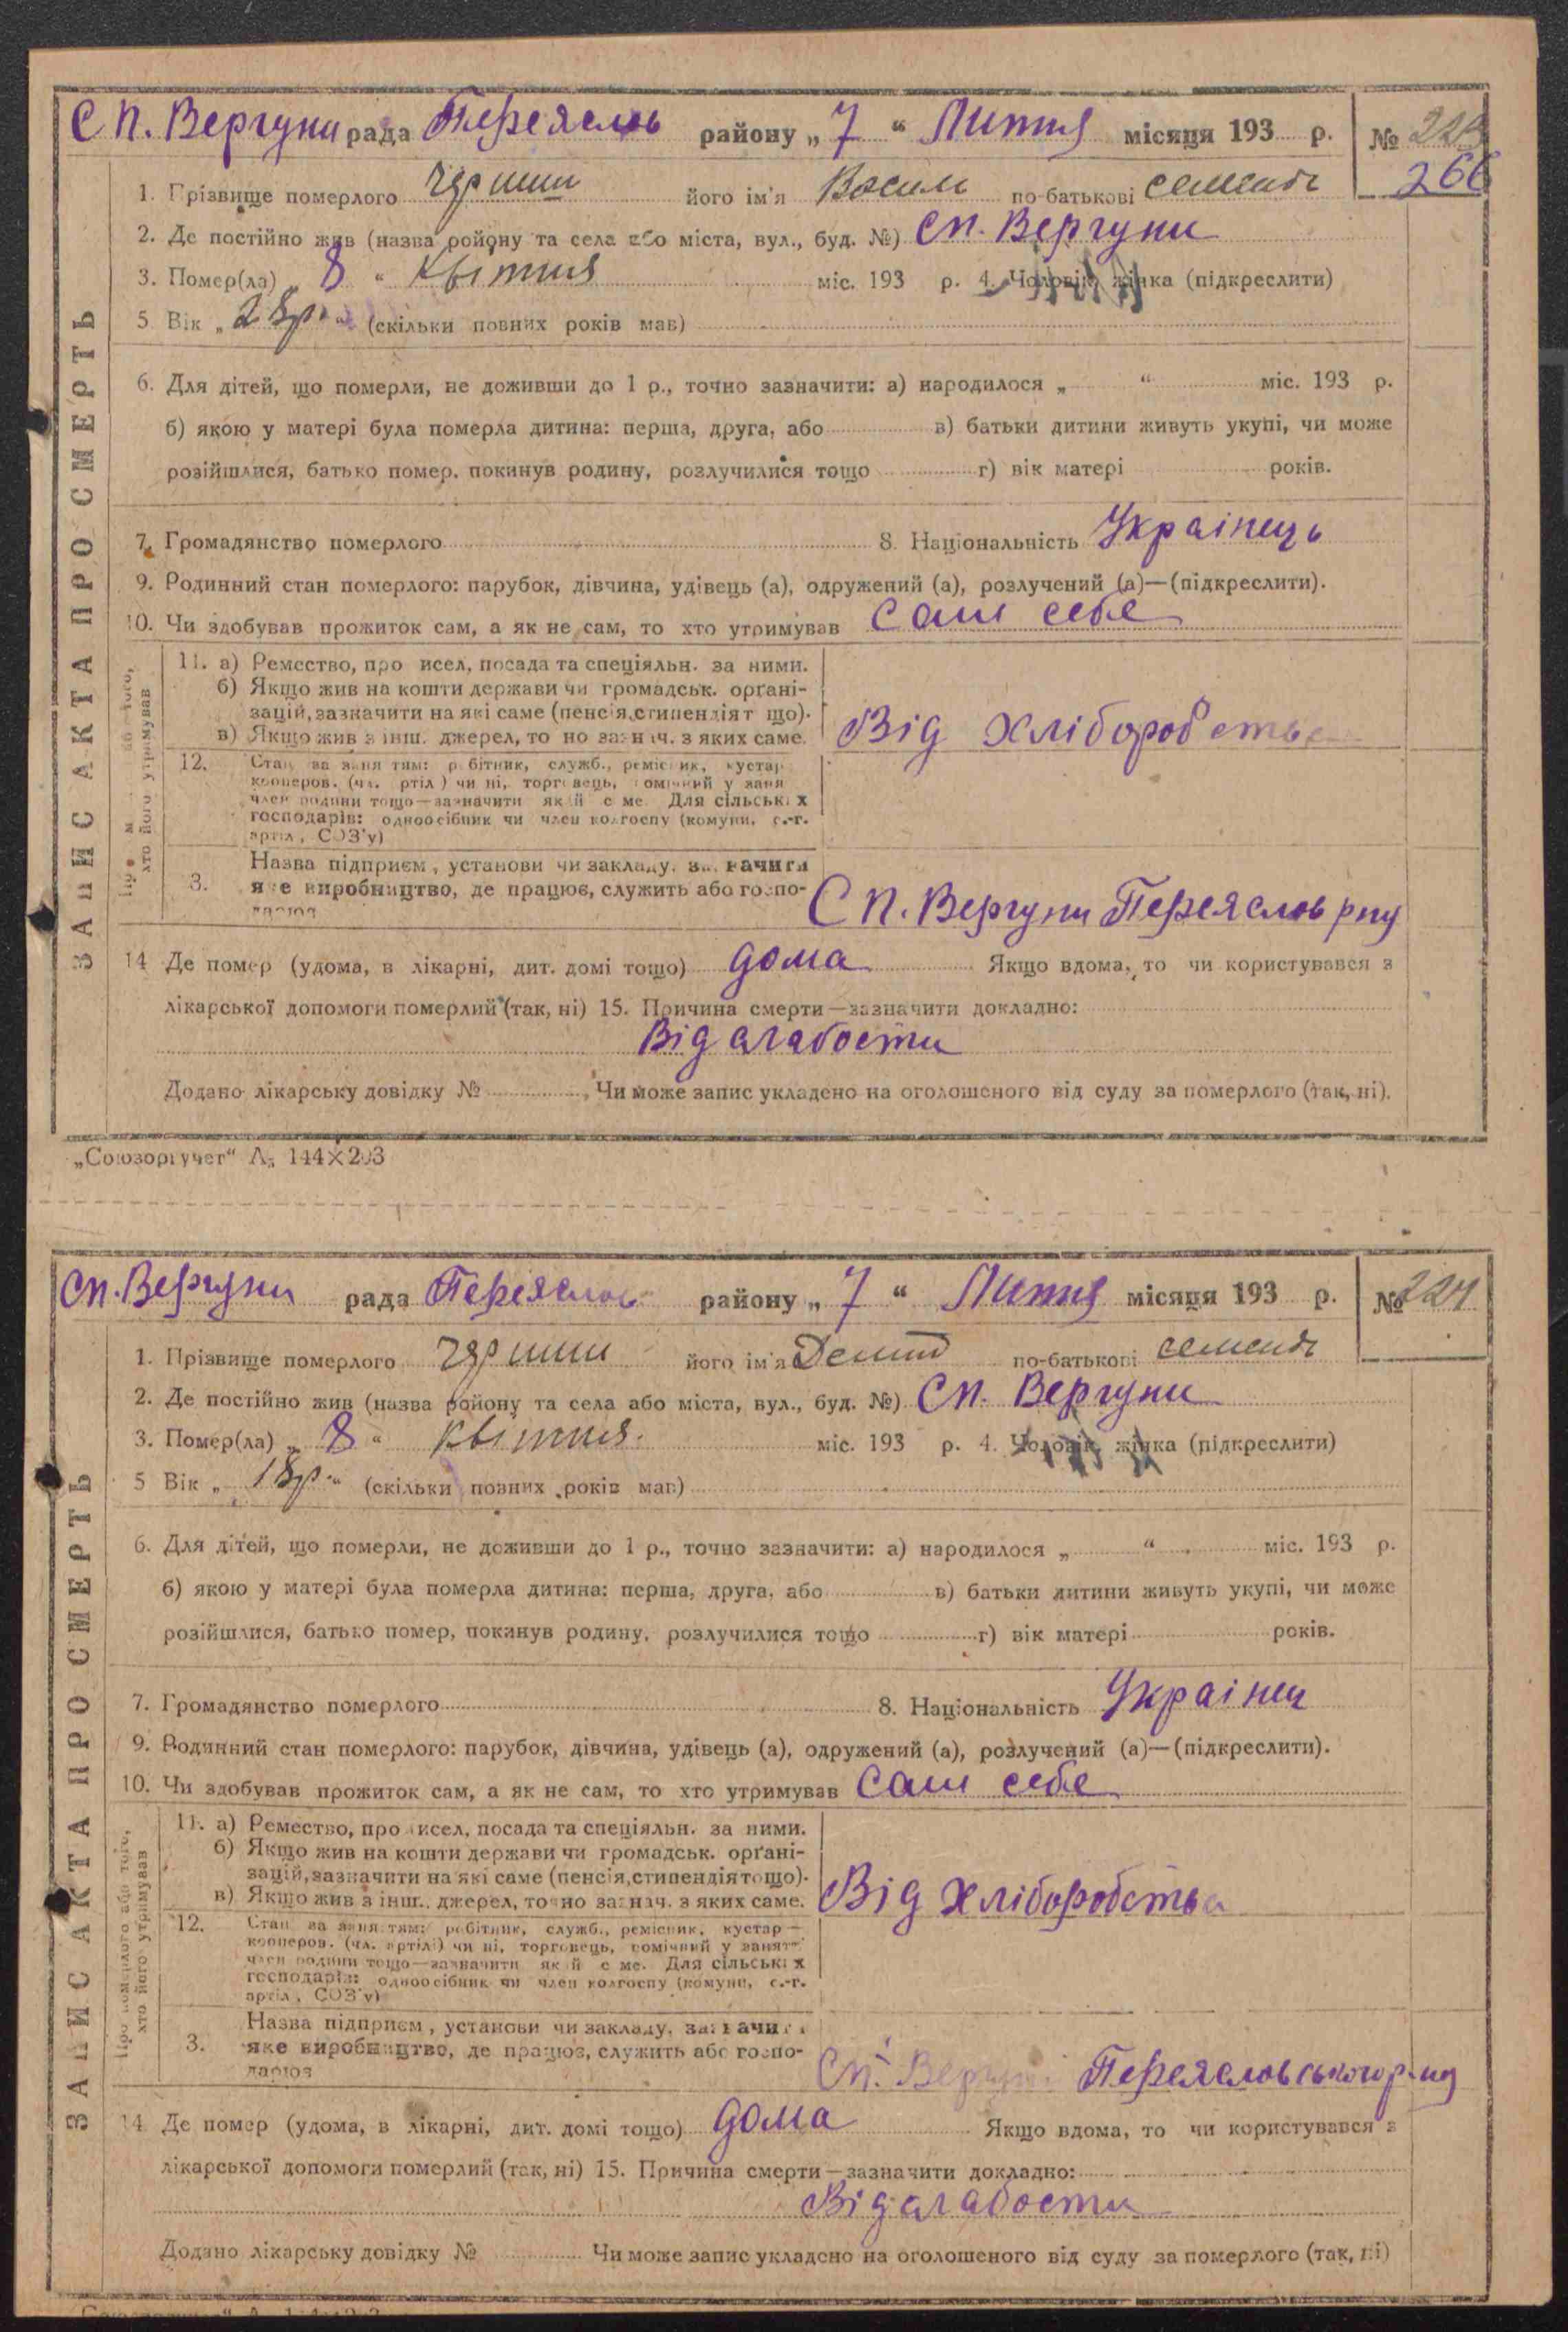 С П. Вергуни рада Переяслов району „ 7 “ Липня місяця 193 р. № 223
266
1. Прізвище померлого його ім'я Василь по-батькові
2. Де постійно жив (назва району та села або міста, вул., буд. №) сп. Вергуни
3. Помер(ла) „ 8 “ Квітня міс. 193 р. 4. Чоловік, жінка (підкреслити)
5 Вік „ 28р. “ (скільки повних років мав)
6. Для дітей, що померли, не доживши до 1 р., точно зазначити: а) народилося „ “ міс. 193 р.
б) якою у матері була померла дитина: перша, друга, або в) батьки дитини живуть укупі, чи може
розійшлися, батько помер, покинув родину, розлучилися тощо г) вік матері років.
7. Громадянство померлого 8. Національність Українець
9. Родинний стан померлого: парубок, дівчина, удівець (а), одружений (а), розлучений (а)—(підкреслити).
10. Чи здобував прожиток сам, а як не сам, то хто утримував Сам себе
11. а) Ремество, про исел, посада та спеціяльн. за ними.
б) Якщо жив на кошти держави чи громадськ. орґані-
зацій, зазначити на які саме (пенсія, стипендіят що).
в) Якщо жив з інш. джерел, то но зазнач. з яких саме.
Від Хліборобства
12. Стан за заняттям: робітник, служб., ремісник, кустар
кооперов. (чл. артілі) чи ні, торговець, помічний у занят
член родини тощо—зазначити який саме. Для сільських
господарів: одноосібник чи член колгоспу (комуни, с.-г.
артіл, СОЗ'у)
3. Назва підприєм, установи чи закладу, зазначити
яке виробництво, де працює, служить або госпо-
дарює
С П. Вергуни Переяслов рну
14 Де помер (удома, в лікарні, дит. домі тощо) дома Якщо вдома, то чи користувався з
лікарської допомоги померлий (так, ні) 15. Причина смерти—зазначити докладно:
Від слабости
Додано лікарську довідку № , Чи може запис укладено на оголошеного від суду за померлого (так, ні).
ЗАПИС АКТА ПРО СМЕРТЬ
„Союзоргучет“ А5 144×203
сп. Вергуни рада Переяслов району „ 7 “ Липня місяця 193 р. № 224
1. Прізвище померлого його ім'я Демид по-батькові
2. Де постійно жив (назва району та села або міста, вул., буд. №) Сп. Вергуни
3. Помер(ла) „ 8 “ квітня. міс. 193 р. 4. Чоловік, жінка (підкреслити)
5 Вік „ 18р. “ (скільки повних років мав)
6. Для дітей, що померли, не доживши до 1 р., точно зазначити: а) народилося „ “ міс. 193 р.
б) якою у матері була померла дитина: перша, друга, або в) батьки дитини живуть укупі, чи може
розійшлися, батько помер, покинув родину, розлучилися тощо г) вік матері років.
7. Громадянство померлого 8. Національність Українец
9. Родинний стан померлого: парубок, дівчина, удівець (а), одружений (а), розлучений (а)—(підкреслити).
10. Чи здобував прожиток сам, а як не сам, то хто утримував Сам себе
11. а) Ремество, про исел, посада та спеціяльн. за ними.
б) Якщо жив на кошти держави чи громадськ. орґані-
зацій, зазначити на які саме (пенсія, стипендія тощо).
в) Якщо жив з інш. джерел, точно зазнач. з яких саме.
Від Хліборобства
12. Стан за заняттям: робітник, служб., ремісник, кустар—
кооперов. (чл. артілі) чи ні, торговець, помічний у занят
член родини тощо—зазначити який саме. Для сільських
господарів: одноосібник чи член колгоспу (комуни, с.-г.
артіл, СОЗ'у)
Про померлого або того, хто його утримував
3. Назва підприєм, установи чи закладу, зазначити
яке виробництво, де працює, служить або госпо-
дарює
Сп. Вергуни Переясловського р-ну
14 Де помер (удома, в лікарні, дит. домі тощо) дома Якщо вдома, то чи користувався з
лікарської допомоги померлий (так, ні) 15. Причина смерти—зазначити докладно:
Від слабости
Додано лікарську довідку № Чи може запис укладено на оголошеного від суду за померлого (так, ні)
ЗАПИС АКТА ПРО СМЕРТЬ